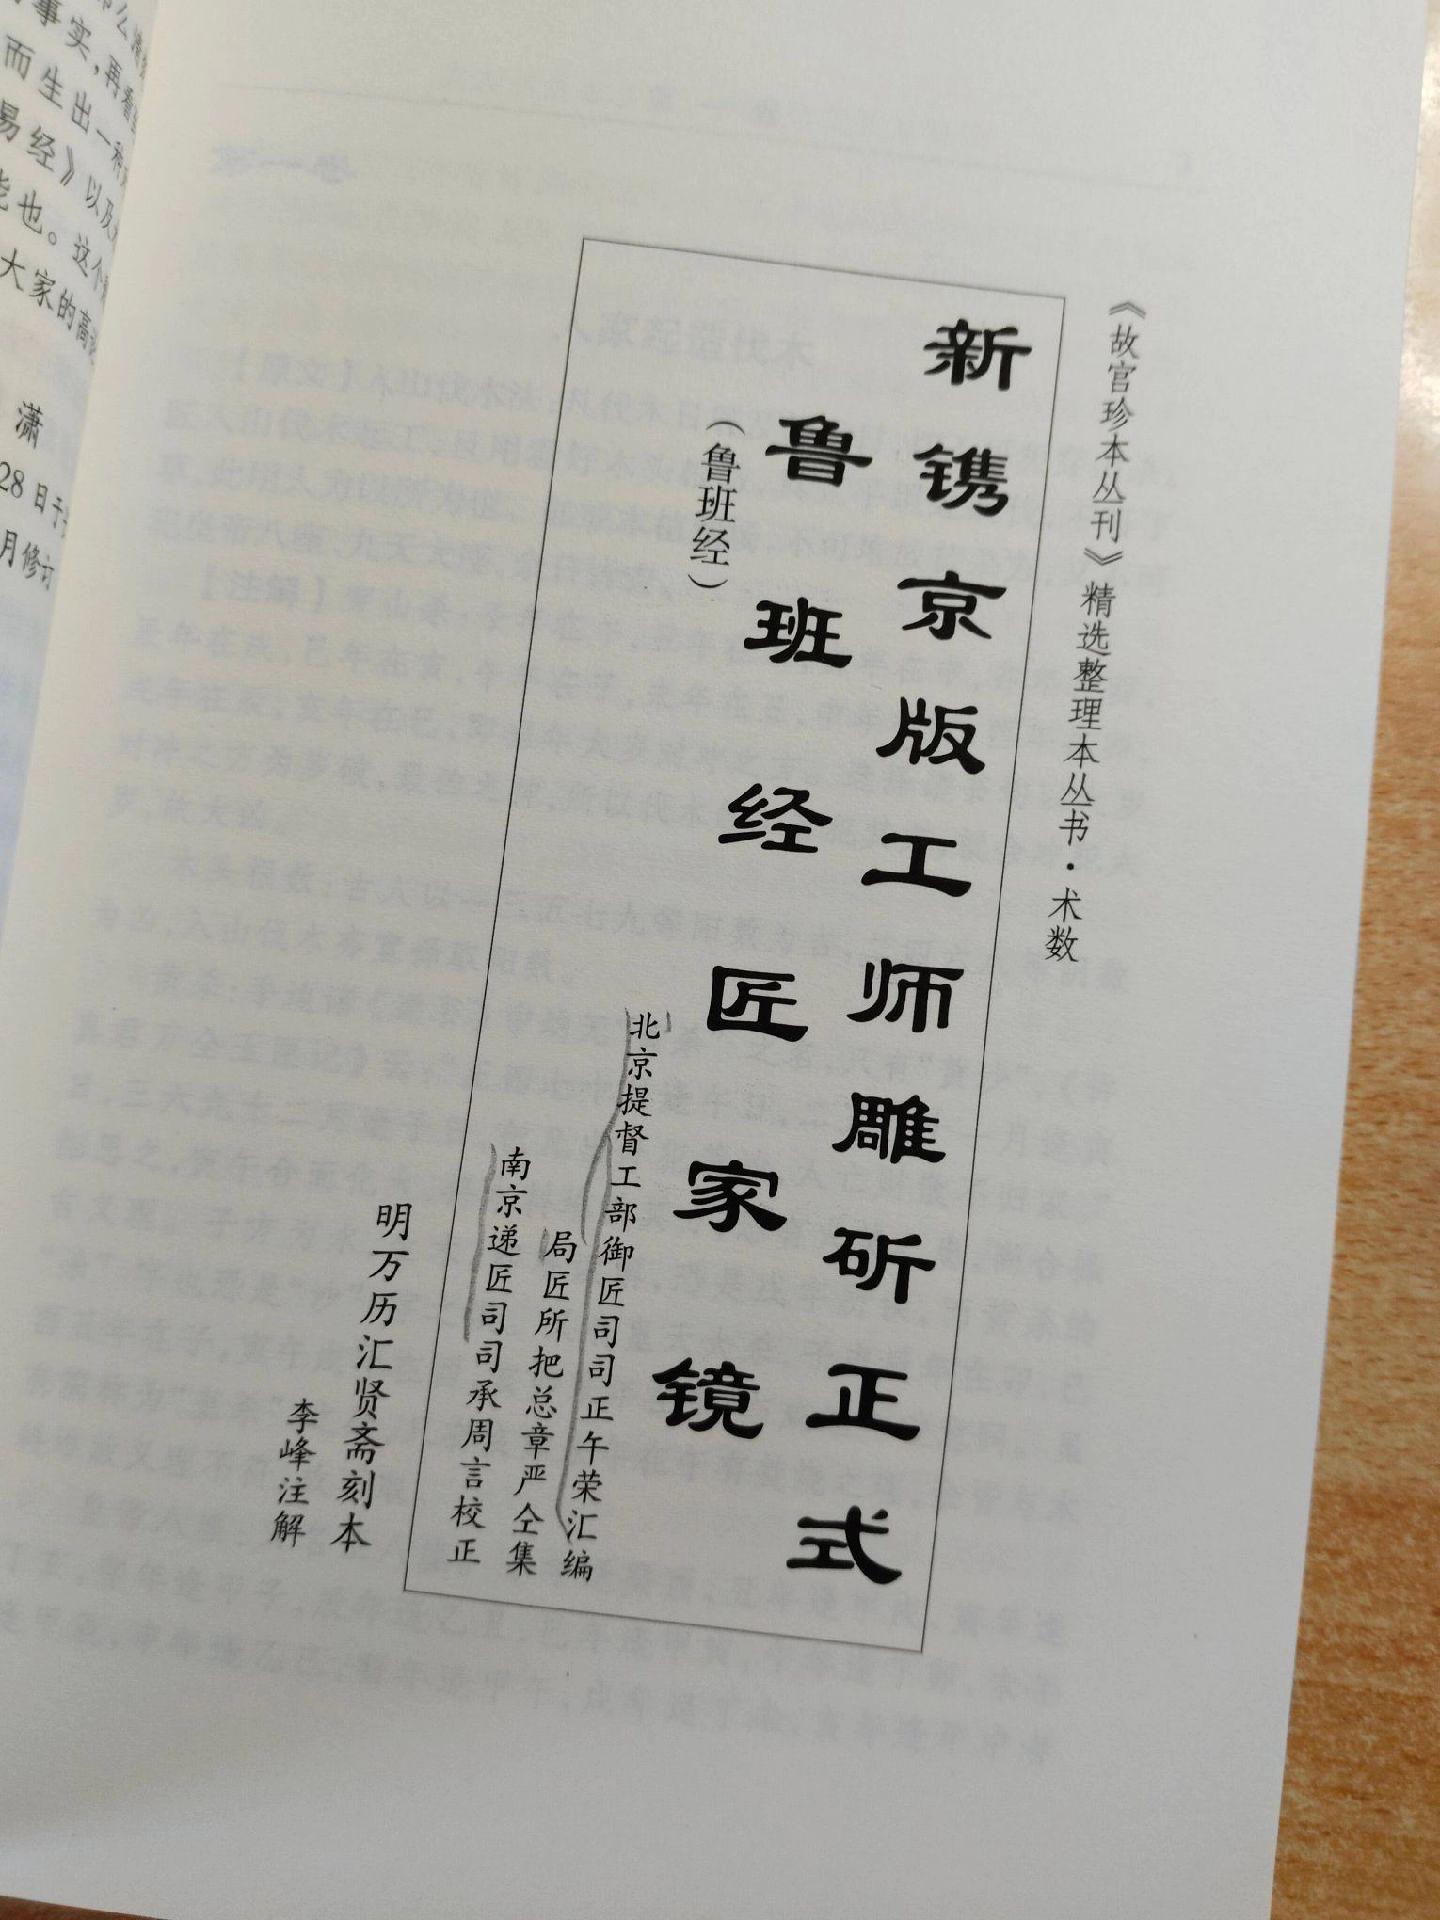 《故宫珍本丛刊》精选整理本丛书·术数
新镌京版工师雕斫正式
鲁班经匠家镜
（鲁班经）
北京提督工部御匠司司正午荣汇编
局匠所把总章严仝集
南京递匠司司承周言校正
明万历汇贤斋刻本
李峰注解
事实，再看
而生出一种
易经》以及
也。这个
大家的高
潇
28日于
月修订